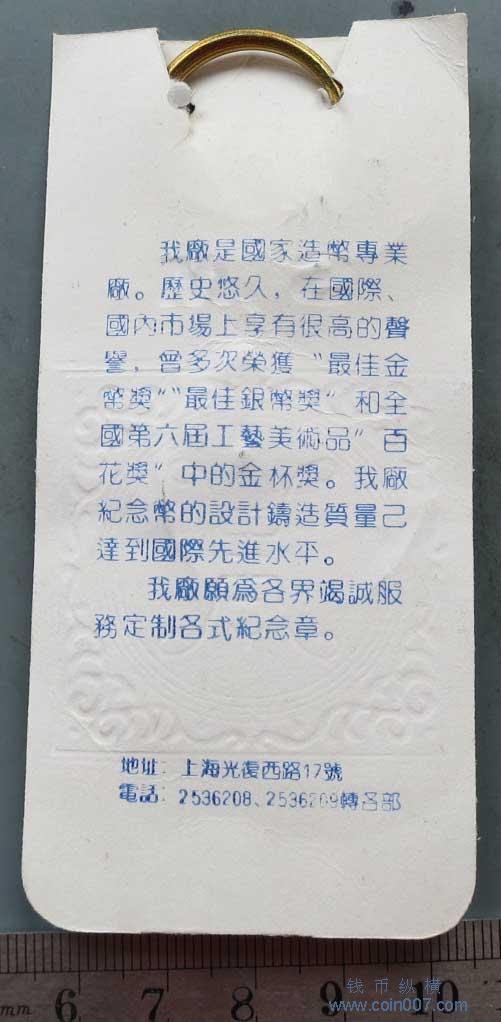 我廠是國家造幣專業
廠。歷史悠久，在國際、
國內市場上享有很高的聲
譽，曾多次榮獲“最佳金
幣獎”“最佳銀幣獎”和全
國第六屆工藝美術品“百
花獎”中的金杯獎。我廠
紀念幣的設計鑄造質量已
達到國際先進水平。
我廠願爲各界竭誠服
務定制各式紀念章。
地址：上海光復西路17號
電話：2536208、2536209轉各部
mm 6 7 8 9 10
钱币纵横
www.coin007.com